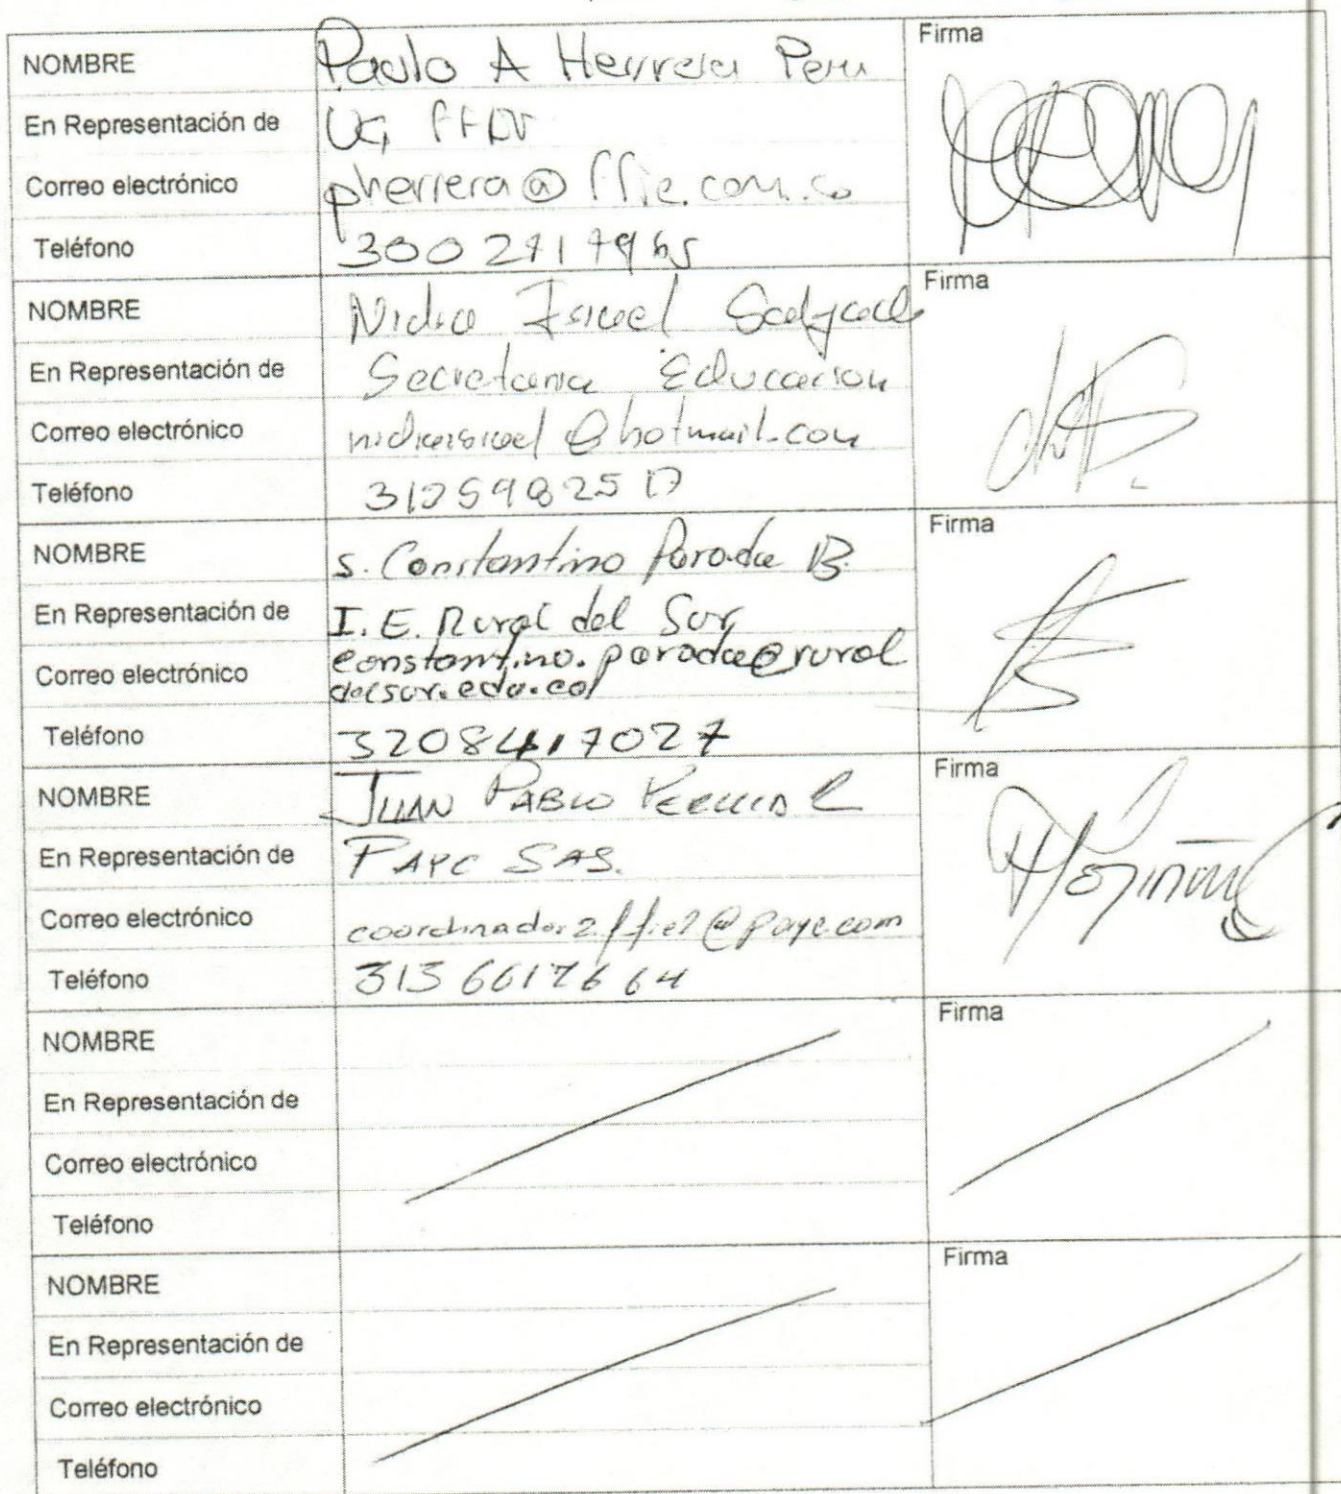 NOMBRE Paulo A Herrera Firma
En Representación de UG
Correo electrónico pherrera@ffie.com.co
Teléfono
NOMBRE Nidia Isabel Firma
En Representación de Secretaria Educacion
Correo electrónico @hotmail.com
Teléfono
NOMBRE S. Constantino Parada B. Firma
En Representación de I. E. Rural del Sur
Correo electrónico constantino.parada@rural
delsur.edu.co
Teléfono 3208417027
NOMBRE JUAN PABLO Firma
En Representación de PAYC SAS.
Correo electrónico @payc.com
Teléfono
NOMBRE Firma
En Representación de
Correo electrónico
Teléfono
NOMBRE Firma
En Representación de
Correo electrónico
Teléfono